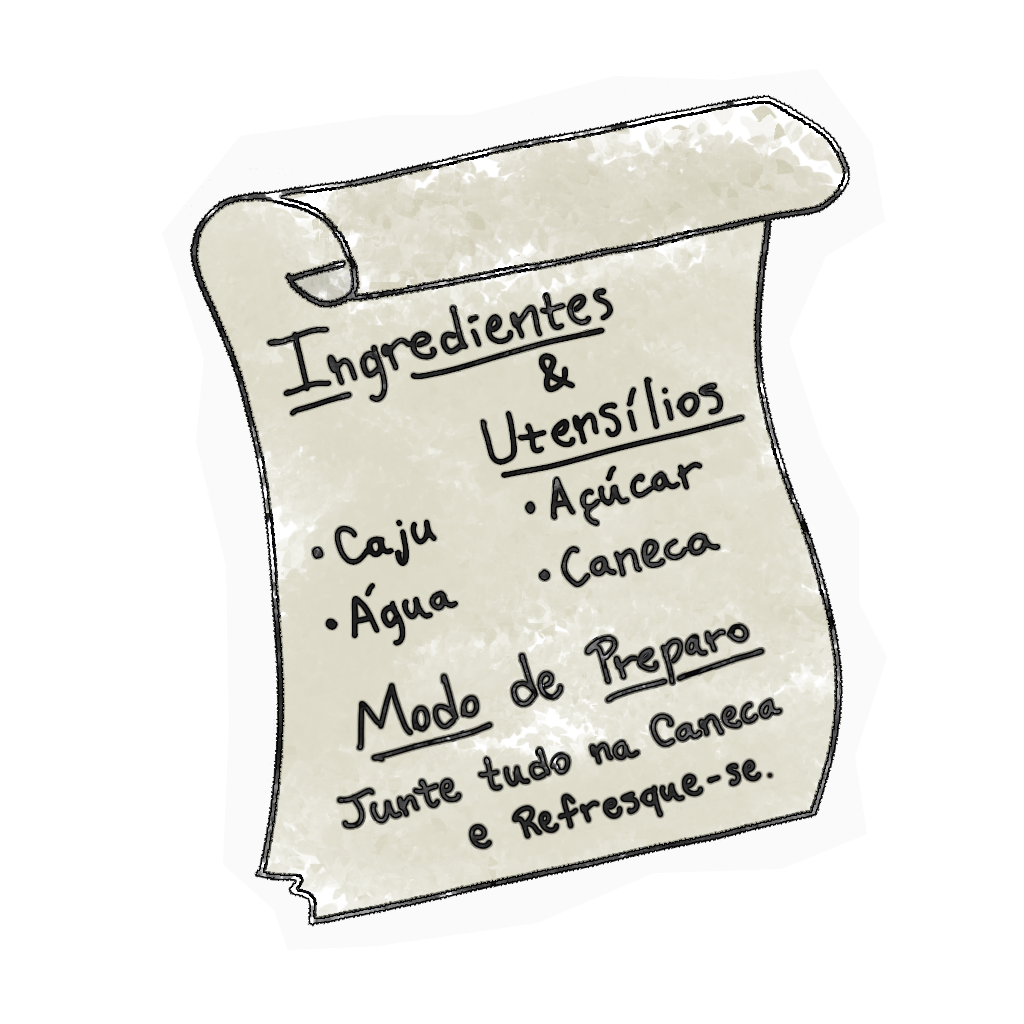 Ingredientes
&
Utensílios
• Caju
• Água
• Açúcar
• Caneca
Modo de Preparo
Junte tudo na Caneca
e Refresque-se.